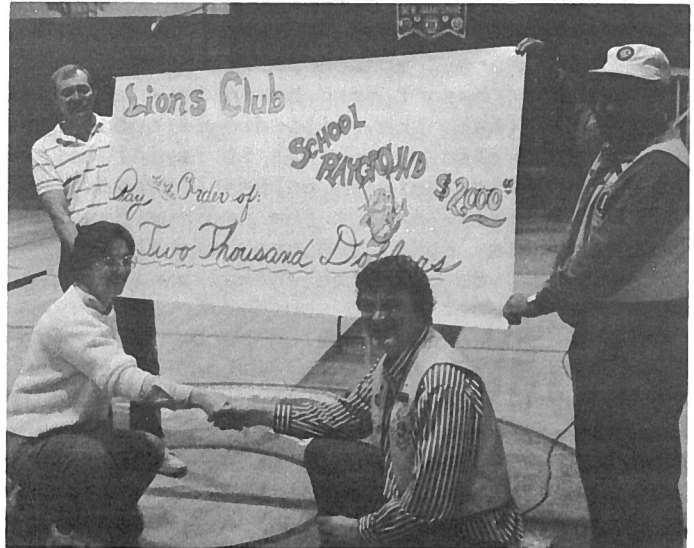 Lions Club
SCHOOL
PLAYGROUND
$2,000
Pay Order of:
Two Thousand Dollars